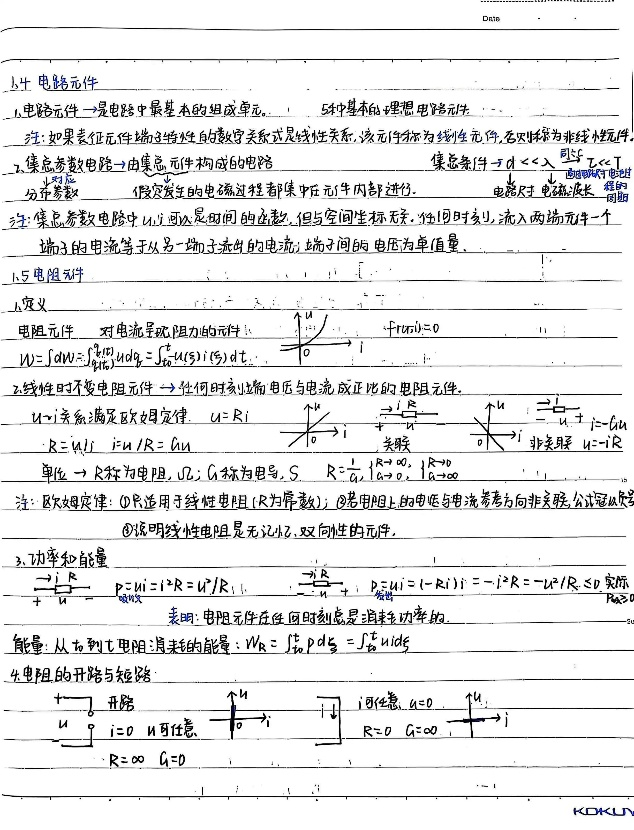 Date
1.4 电路元件
1.电路元件→是电路中最基本的组成单元。 5种基本的理想电路元件
注:如果表征元件端子特性的数学关系式是线性关系,该元件称为线性元件,否则称为非线性元件.
2.集总参数电路→由集总元件构成的电路 集总条件→d<<λ τ<<T
对应
分布参数 假定发生的电磁过程都集中在元件内部进行. 电路尺寸 电磁波长
注:集总参数电路中u,i可以是时间的函数,但与空间坐标无关.任何时刻,流入两端元件一个
端子的电流等于从另一端子流出的电流;端子间的电压为单值量.
1.5 电阻元件
1.定义
电阻元件 对电流呈现阻力的元件 u i 0 f(u,i)=0
W=∫dW=∫q(t)q(t₀)udq=∫t₀t u(ξ)i(ξ)dξ
2.线性时不变电阻元件→任何时刻端电压与电流成正比的电阻元件.
u~i关系满足欧姆定律 u=Ri u i 0 i R + u - 关联 u i 0 i - u + 非关联 i=-Gu
R=u/i i=u/R=Gu u=-iR
单位→R称为电阻,Ω;G称为电导,S R=1/G,{R→∞,G→0,{R→0 G→∞
注:欧姆定律:①只适用于线性电阻(R为常数);②若电阻上的电压与电流参考方向非关联,公式冠以负号
③说明线性电阻是无记忆、双向性的元件.
3.功率和能量
i R + u - P=ui=i²R=u²/R i R - u + P=ui=(-Ri)i=-i²R=-u²/R≤0 实际
吸收
表明:电阻元件在任何时刻总是消耗功率的.
能量:从t₀到t电阻消耗的能量:WR=∫t₀t pdξ=∫t₀t uidξ
4.电阻的开路与短路
+ u - 开路 u 0 i i i可任意 u=0 u i
i=0 u可任意 R=0 G=∞
R=∞ G=0
KOKUY